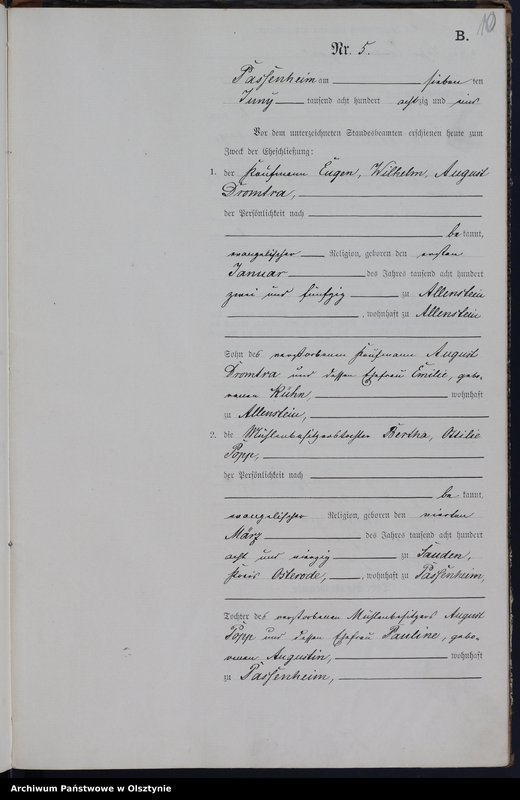 10
B.
Nr. 5.
Passenheim am sieben ten
Juny tausend acht hundert achtzig und eins
Vor dem unterzeichneten Standesbeamten erschienen heute zum
Zweck der Eheschließung:
1. der Kaufmann Eugen, Wilhelm, August
Dromtra,
der Persönlichkeit nach
be kannt,
evangelischer Religion, geboren den ersten
Januar des Jahres tausend acht hundert
zwei und fünfzig zu Allenstein
, wohnhaft zu Allenstein
Sohn des verstorbenen Kaufmann August
Dromtra und dessen Ehefrau Emilie, gebo-
renen Kühn, wohnhaft
zu Allenstein,
2. die Mühlenbesitzerstochter Bertha, Ottilie
Popp,
der Persönlichkeit nach
be kannt,
evangelischer Religion, geboren den vierten
März des Jahres tausend acht hundert
acht und vierzig zu Tauden,
Kreis Osterode, , wohnhaft zu Passenheim,
Tochter des verstorbenen Mühlenbesitzers August
Popp und dessen Ehefrau Pauline, gebo-
renen Augustin, wohnhaft
zu Passenheim,
Archiwum Państwowe w Olsztynie